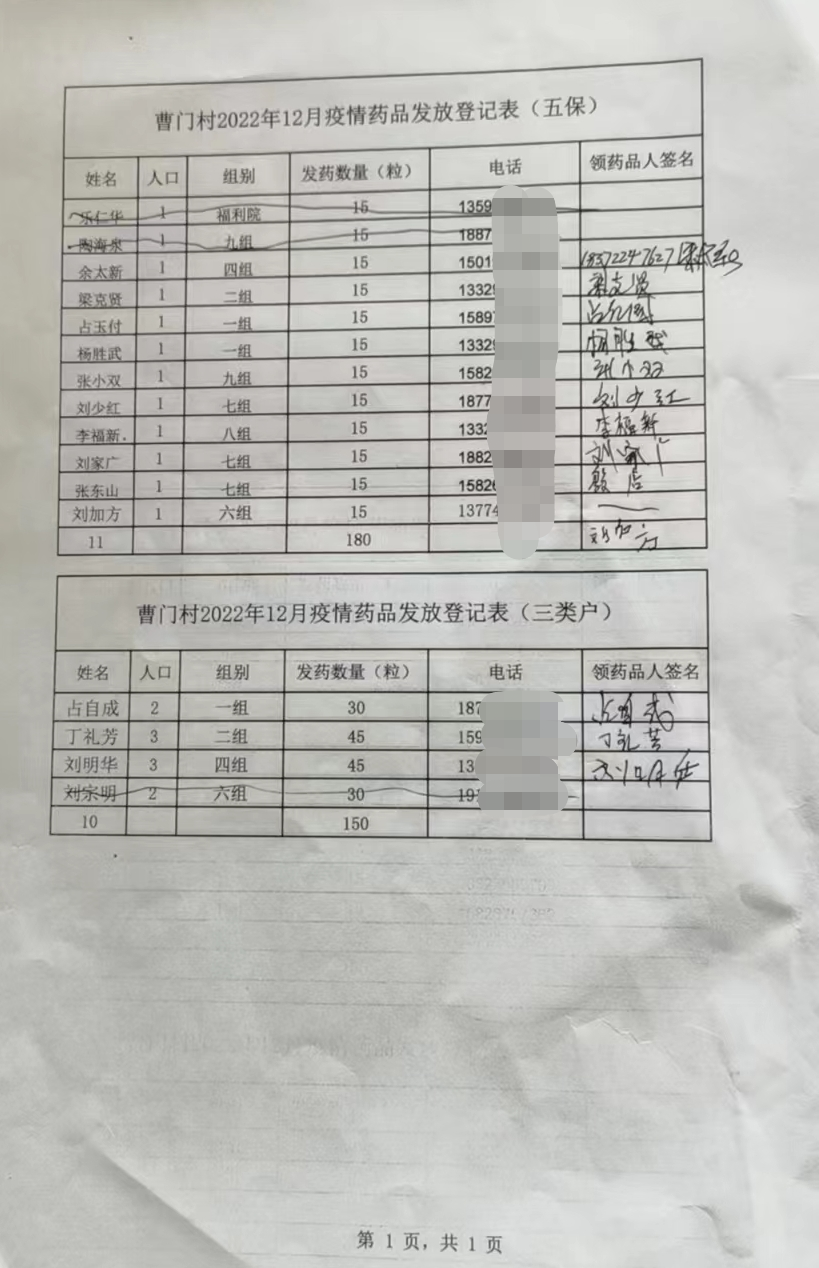 曹门村2022年12月疫情药品发放登记表（五保）
姓名 人口 组别 发药数量（粒） 电话 领药品人签名
乐仁华 1 福利院 15 1359
陶海泉 1 九组 15 1887
余太新 1 四组 15 1501
梁克贤 1 二组 15 1332
占玉付 1 一组 15 1589
杨胜武 1 一组 15 1332 杨胜武
张小双 1 九组 15 1582 张小双
刘少红 1 七组 15 1877 刘少红
李福新. 1 八组 15 133 李福新
刘家广 1 七组 15 1882 刘家广
张东山 1 七组 15 1582
刘加方 1 六组 15 13774
11 180 刘加方
曹门村2022年12月疫情药品发放登记表（三类户）
姓名 人口 组别 发药数量（粒） 电话 领药品人签名
占自成 2 一组 30 187
丁礼芳 3 二组 45 159 丁礼芳
刘明华 3 四组 45 13 刘明华
刘宗明 2 六组 30 19
10 150
第 1 页，共 1 页